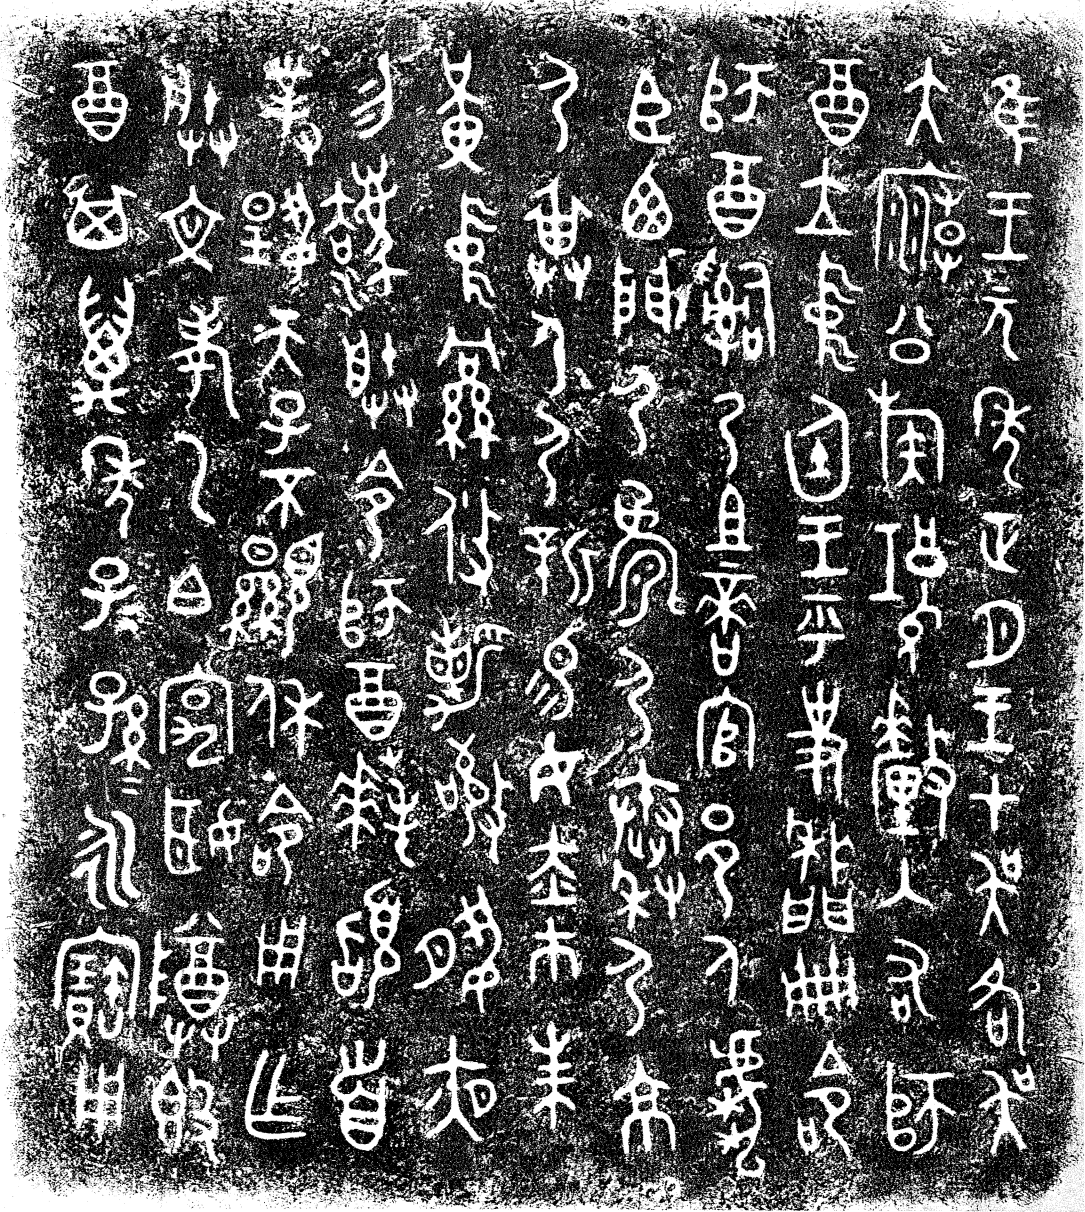 隹王元年正月王才吳各吳
大廟公族釐入右師
酉立中廷王乎史牆冊命
師酉嗣乃且啻官邑人虎
臣西門尸尸秦尸京
尸畁身尸新易女赤巿朱
黃中攸勒敬夙夜
勿灋朕令師酉拜𩒨首
對揚天子不顯休命用乍
朕文考乙白宮姬尊簋
酉其萬年子子孫孫永寶用